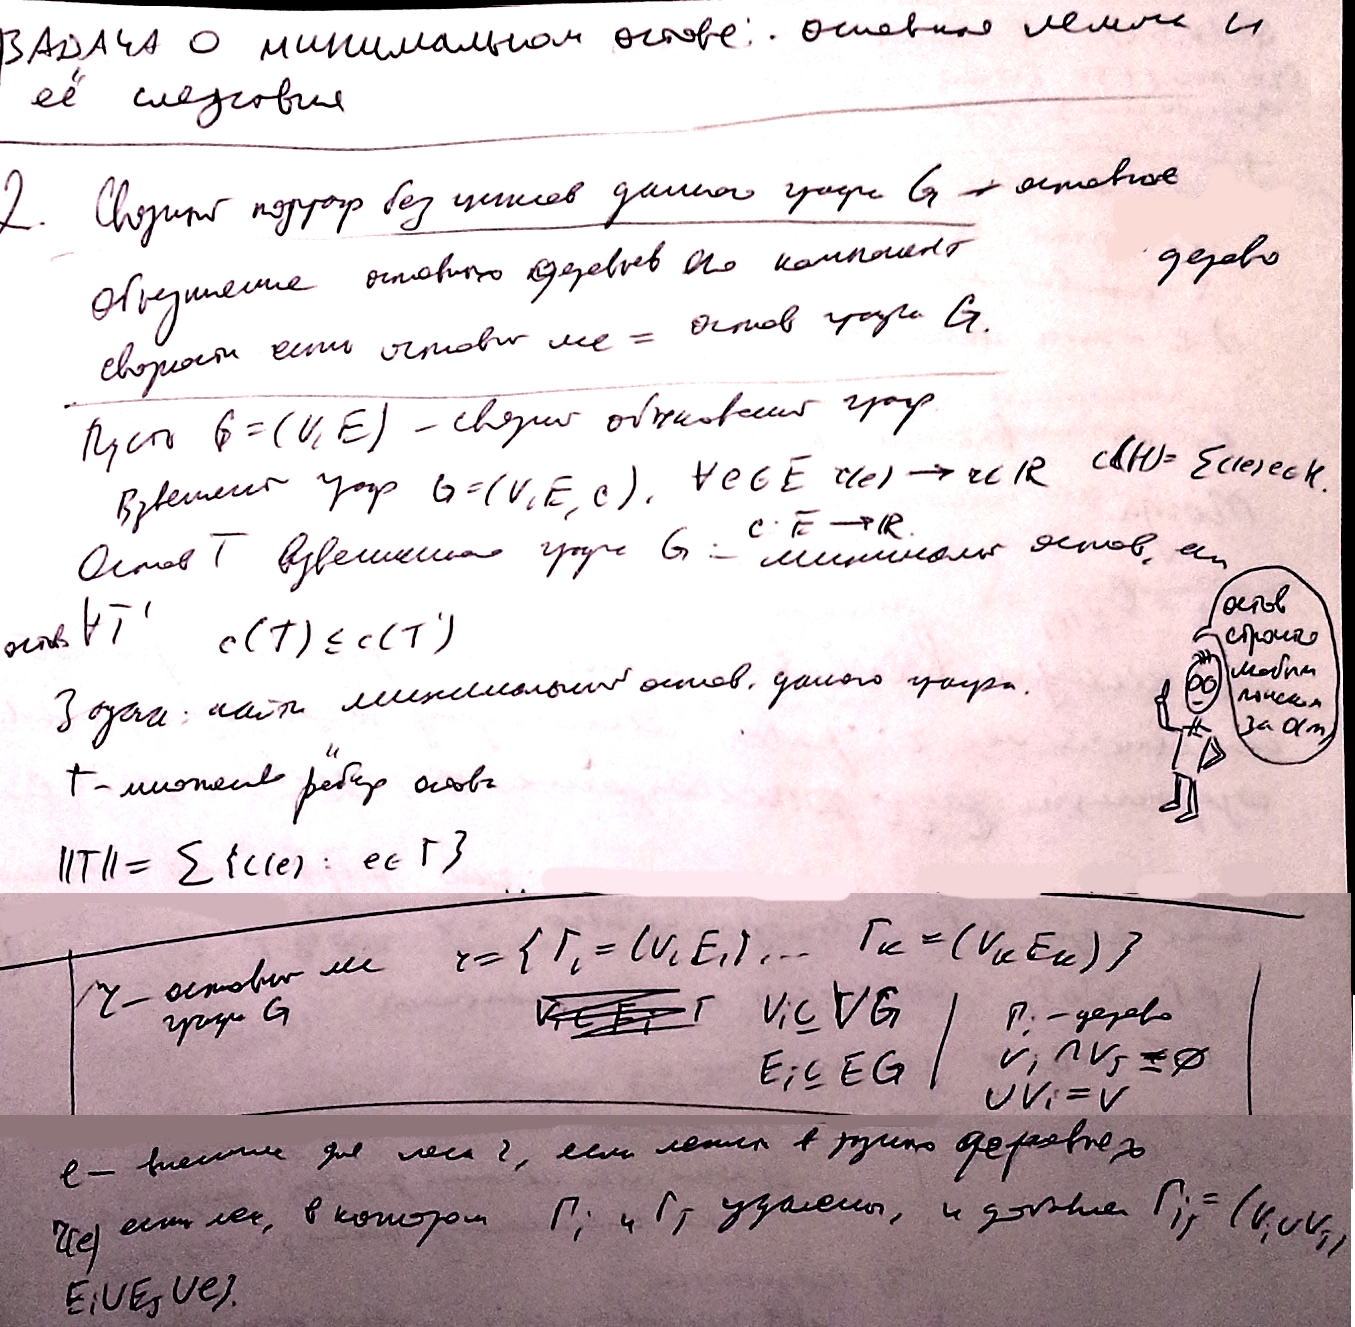 ЗАДАЧА О минимальном остове: основная лемма и
её следствия
2. Связный подграф без циклов данного графа G → остовное
дерево
Объединение остовных деревьев по компонент
связности есть остовный лес = остов графа G.
Пусть G=(V, E) – связный обыкновенный граф
Взвешенный граф G=(V, E, c). ∀e∈E c(e) → r∈ℝ c(H)= Σc(e) e∈H.
c: E → ℝ.
Остов T взвешенного графа G – минимальный остов, если
остов ∀T' c(T) ≤ c(T')
Задача: найти минимальный остов данного графа.
T – множество рёбер остова
||T|| = Σ {c(e) : e∈T}
остов
строится
любым
поиском
за O(m)
r – остовный лес r = {Γi = (Vi Ei), ... Γk = (Vk Ek)}
графа G
Vi ⊆ VG Γi – дерево
Ei ⊆ EG Vi ∩ Vj = ∅
∪Vi = V
e – внешнее для леса r, если лежит в деревьев
r(e) есть лес, в котором Γi и Γj удалены, и добавлен Γij = (Vi∪Vj,
Ei∪Ej∪e).